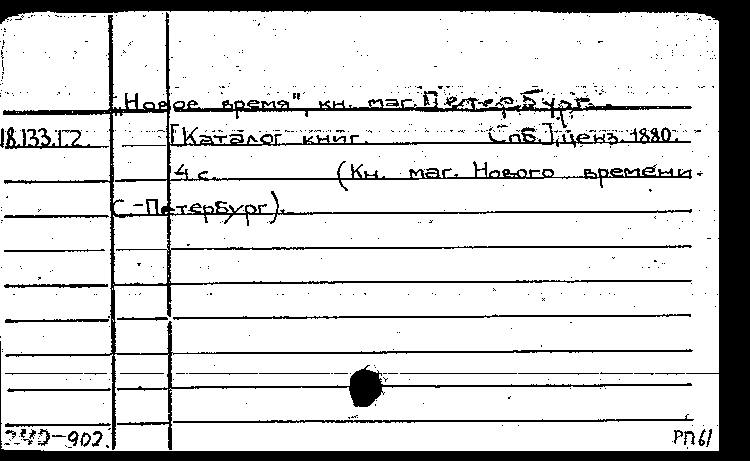 „Новое время", кн. маг. Петербург.
18.133.1.2. [Каталог книг. Спб.], ценз. 1880.
4 с. (Кн. маг. Нового времени.
С-Петербург).
240-902. РП61